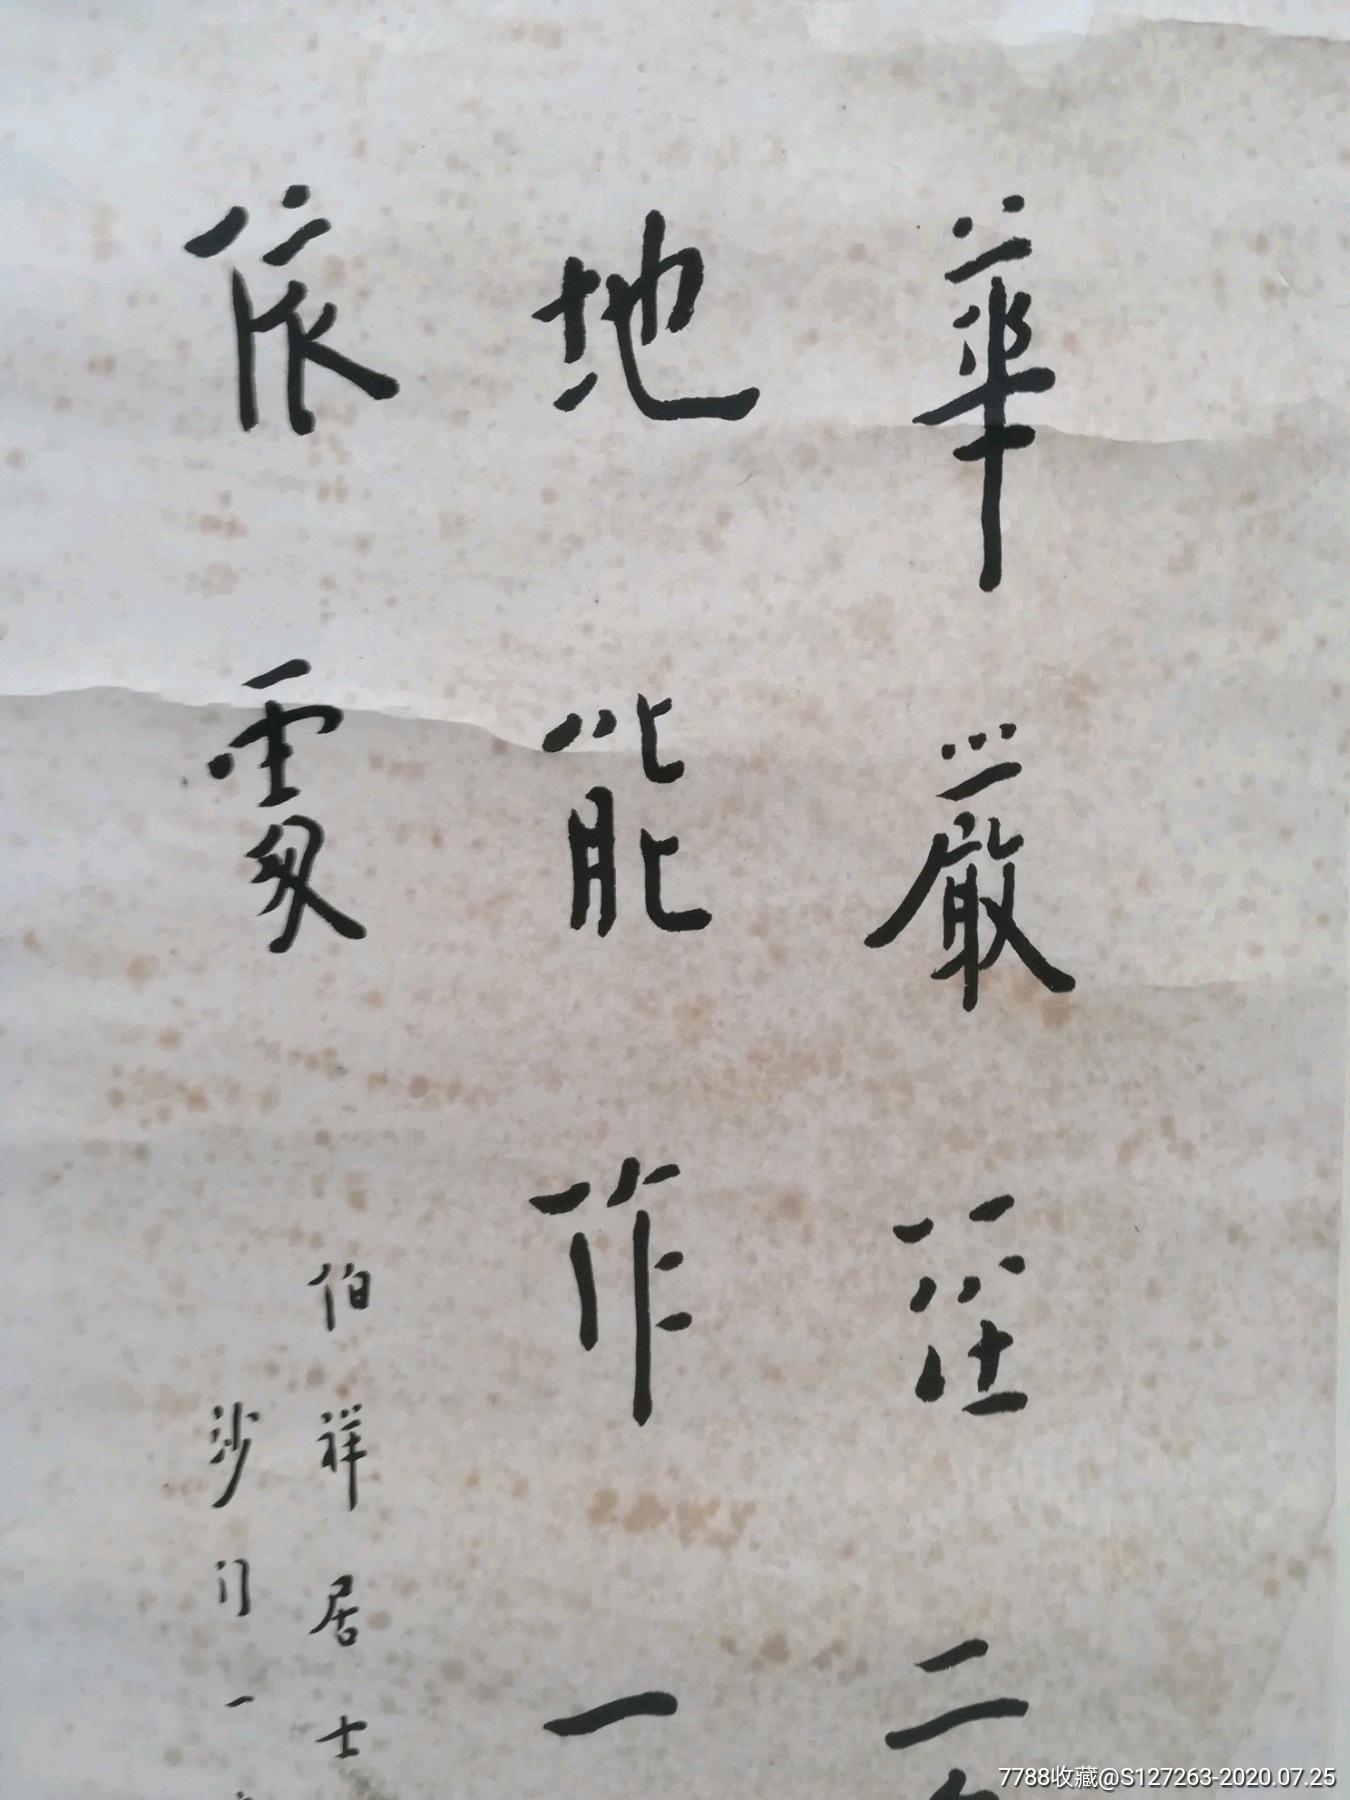 華嚴經二
地能作一
依處
伯祥居士
沙门一
7788收藏@S127263-2020.07.25